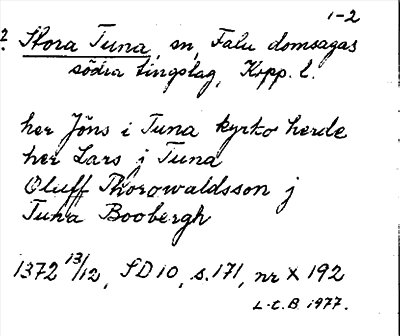 1-2
2. Stora Tuna, sn, Falu domsagas
södra tingslag, Kopp. l.
her Jöns i Tuna kyrko herde
her Lars j Tuna
Oluff Thorowaldsson j
Tuna Boobergh
1372 13/12, SD 10, s. 171, nr X 192
L-E. B. 1977.